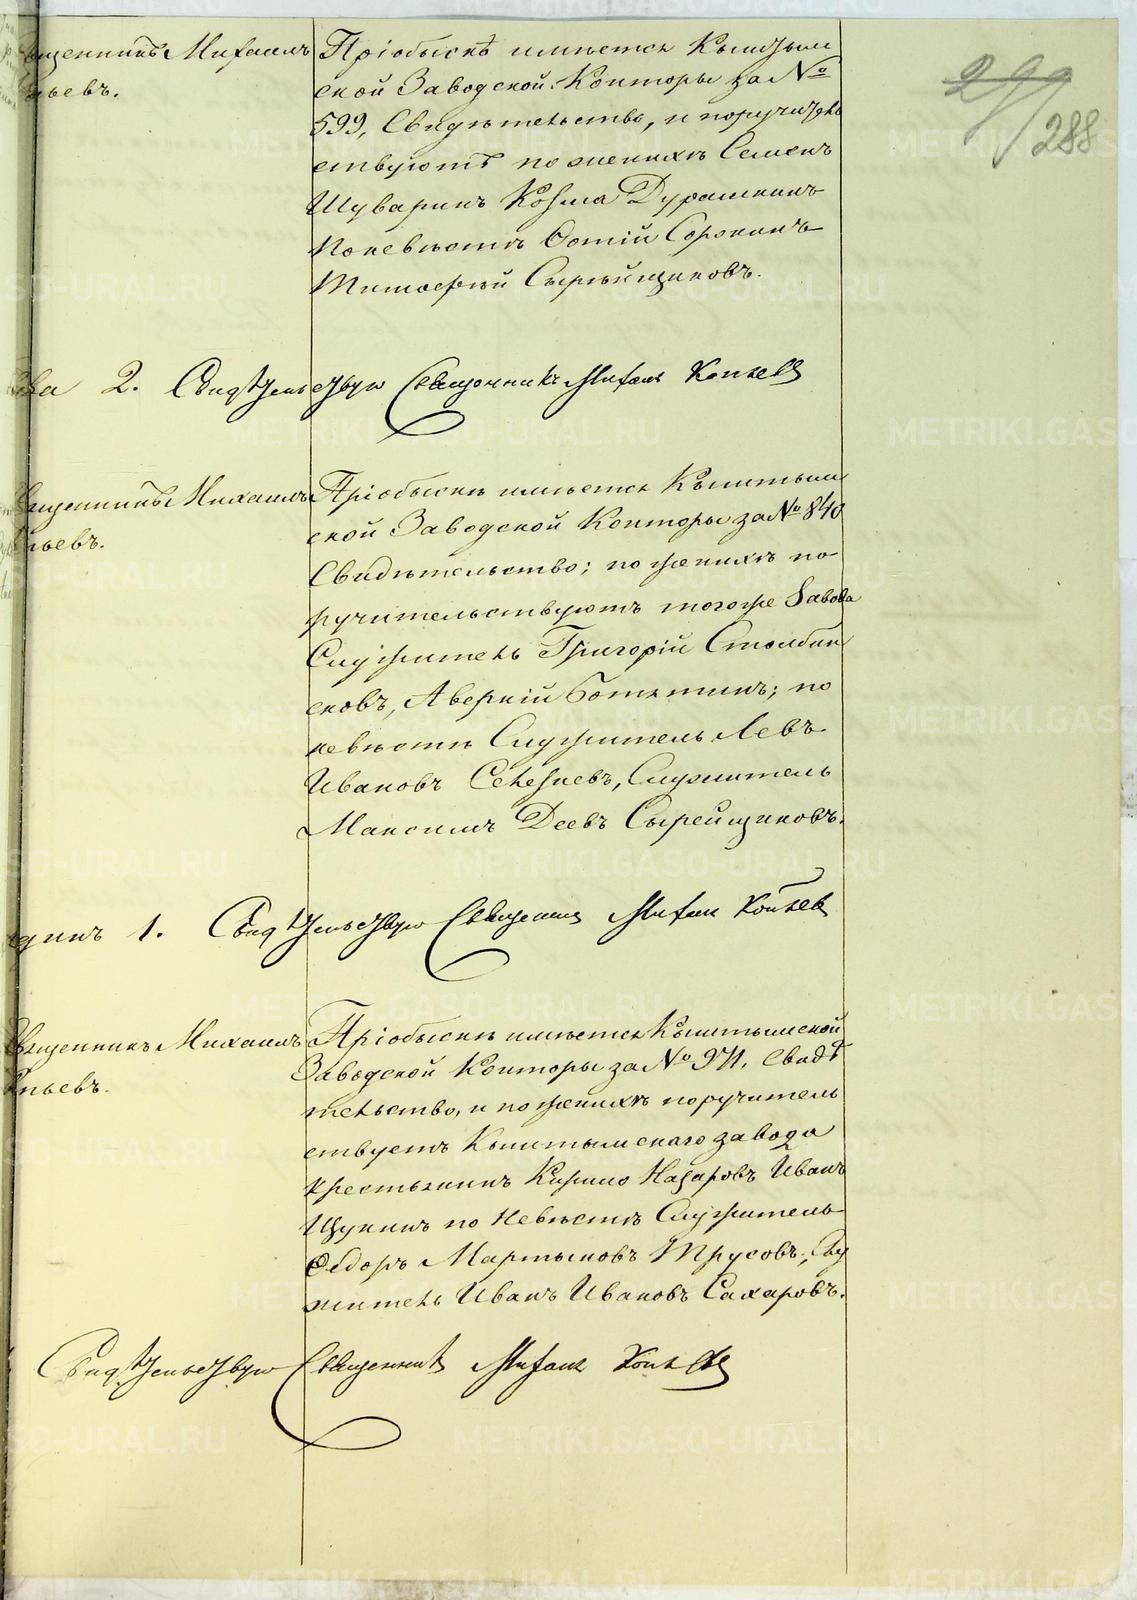 299
288
ященникъ Михаилъ
ьевъ.
Пріобыскѣ имѣется Кыштым
ской Заводской Конторы за №
599, Свидѣтельство, и поручитель
ствуютъ по женихѣ Семенъ
Шуваринъ Козма Дурашкинъ
По невѣстѣ Фотій Сорокинъ
Тимофей Сырѣйщиковъ.
ва 2. Свидѣтельствую Священникъ Михаилъ
вященникъ Михаилъ
ьевъ.
Пріобыскѣ имѣется Кыштым
ской Заводской Конторы за № 840
Свидѣтельство; по женихѣ по
ручительствуютъ тогоже Завода
Служитель Григорій Столбик
ковъ, Аверкій Ботятинъ; по
невѣстѣ Служитель Левъ
Ивановъ Селезневъ, Служитель
Максимъ Деевъ Сырейщиковъ.
динъ 1. Свидѣтельствую Священникъ Михаилъ
вященникъ Михаилъ
ьевъ.
Пріобыскѣ имѣется Кыштымской
Заводской Конторы за № 971, свидѣ
тельство, и по женихѣ поручитель
ствуетъ Кыштымскаго завода
крестьянинъ Кирило Назаровъ Иванъ
Щукинъ по Невѣстѣ Служитель
Федоръ Мартыновъ Трусовъ, Слу
житель Иванъ Ивановъ Сахаровъ.
Свидѣтельствую Священникъ Михаилъ
METRIKI.GASO-URAL.RU